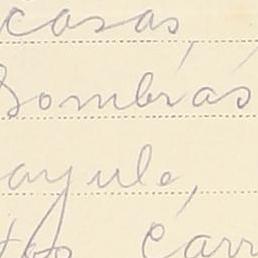 casas,
sombras
ayule,
tos carr